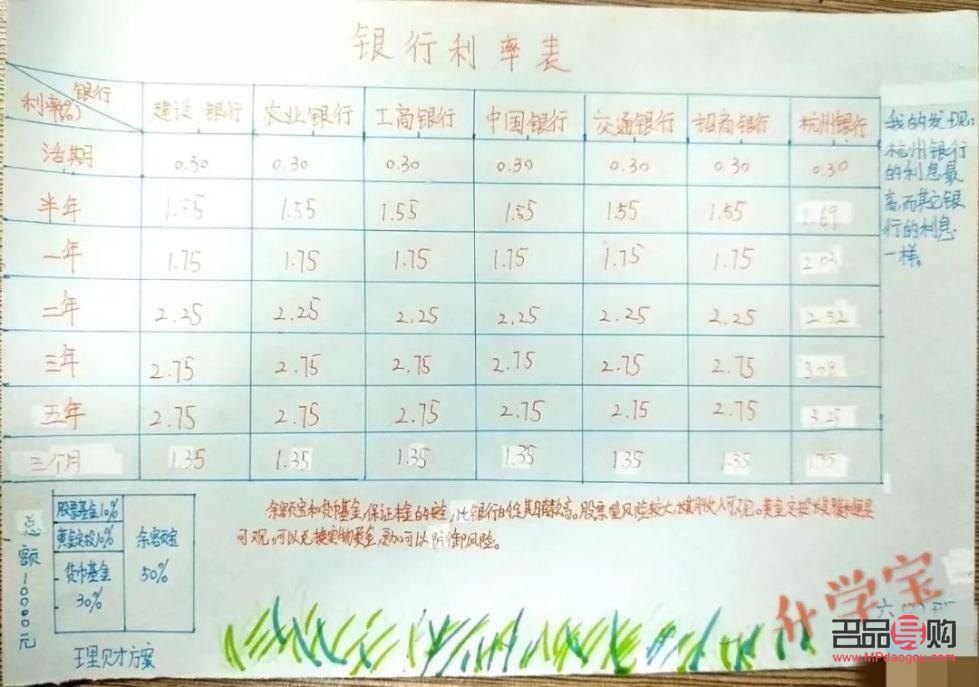 银行利率表
银行
利率(%)
建设银行 农业银行 工商银行 中国银行 交通银行 招商银行 杭州银行
活期 0.30 0.30 0.30 0.30 0.30 0.30 0.30
半年 1.55 1.55 1.55 1.55 1.55 1.55 1.69
一年 1.75 1.75 1.75 1.75 1.75 1.75 2.03
二年 2.25 2.25 2.25 2.25 2.25 2.25 2.52
三年 2.75 2.75 2.75 2.75 2.75 2.75 3.08
五年 2.75 2.75 2.75 2.75 2.75 2.75 3.25
三个月 1.35 1.35 1.35 1.35 1.35 1.35
我的发现:
杭州银行
的利息最
高,而其它银
行的利息
一样。
总额10000元
股票基金10%
黄金定投10%
货币基金
30%
余额宝
50%
理财方案
余额宝和货币基金,保证,比银行的高。股票型风险较大,收入可观。黄金定投
可观。可以兑换实物黄金,更加可以防御风险。
升学宝
名品导购
www.MPdaogou.com